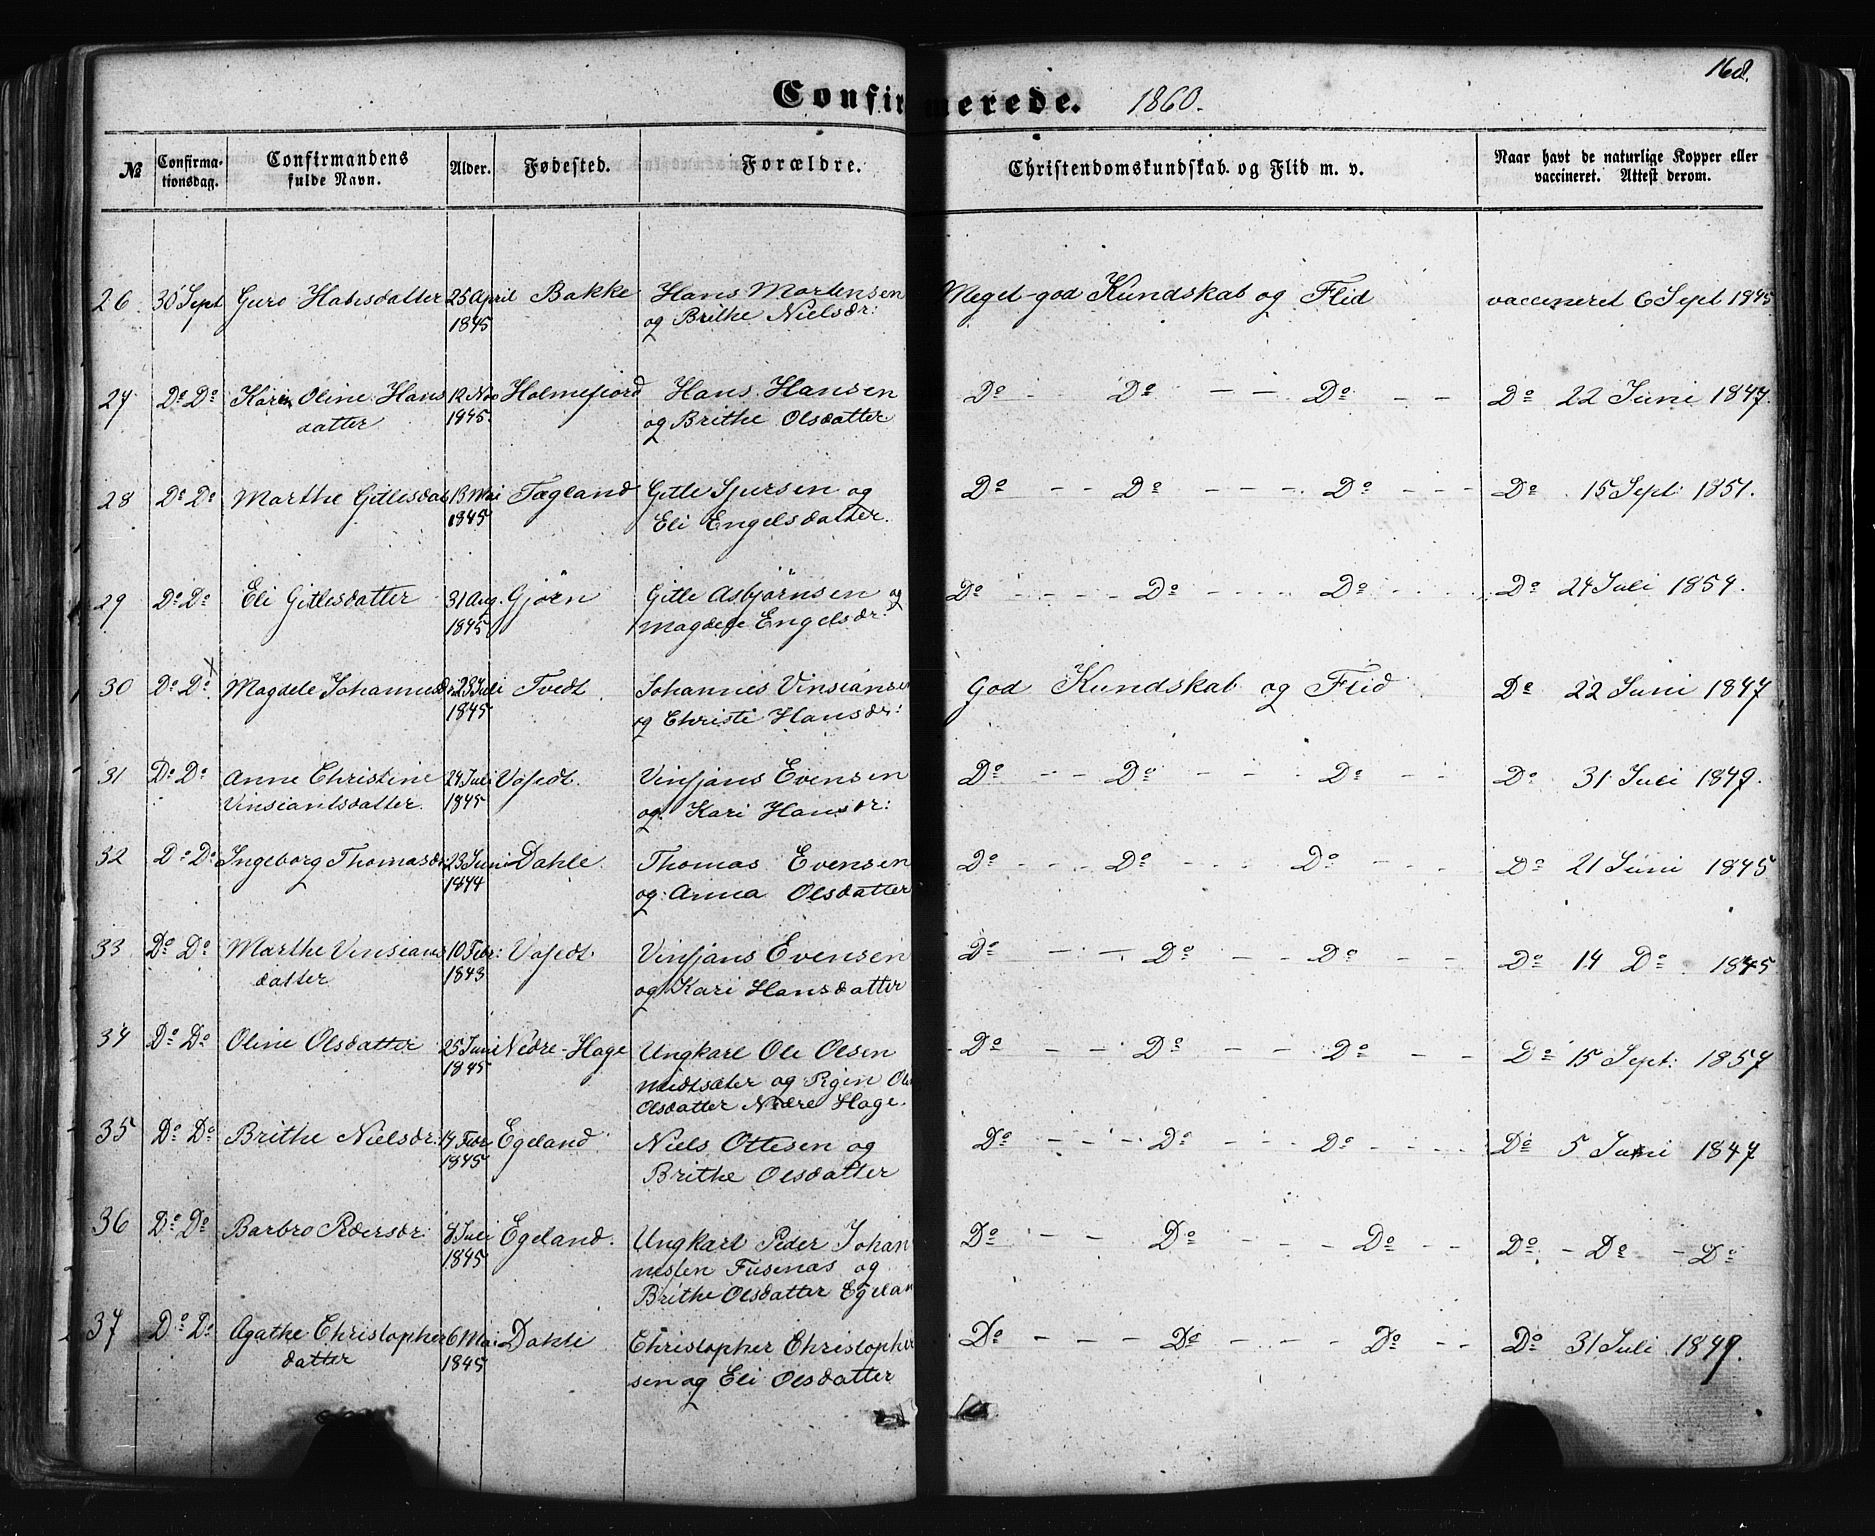 168.
Confirmerede. 1860.
№ Confirmationsdag. Confirmandens fulde Navn. Alder. Fødested. Forældre. Christendomskundskab og Flid m. v. Naar havt de naturlige Kopper eller vaccineret. Attest derom.
26 30 Sept Guro Hansdatter 25 April Bakke Hans Mortensen Meget-god Kundskab og Flid vaccineret 6 Sept 1845
1845 og Brithe Nielsdr:
27 Do Do Karen Oline Hans 12 Nov Holmefjord Hans Hansen Do Do Do Do 22 Juni 1847.
datter 1845. og Brithe Olsdatter
28 Do Do Marthe Gitlesdat 13 Mai Tægland Gitle Sjursen og Do Do Do Do 15 Sept: 1851.
1845 Eli Engelsdatter.
29 Do Do Eli Gitlesdatter 31 Aug. Gjøen Gitle Asbjørnsen og Do Do Do Do 24 Juli 1854.
1845 Magdele Engelsdr
30 Do Do x Magdele Johannesd 23 Juli Tvedt Johannes Vinsiansen God Kundskab og Flid Do 22 Juni 1847
1845 og Christi Hansdr:
31 Do Do Anne Christine 24 Juli Vofedt. Vinsjans Evensen Do Do Do Do 31 Juli 1849.
Vinsiantsdatter. 1845 og Kari Hansdr:
32 Do Do Ingeborg Thomasdr: 23 Juni Dahle Thomas Evensen Do Do Do Do 21 Juni 1845
1844 og Anna Olsdatter
33 Do Do Marthe Vinsians 10 Febr: Vofedt. Vinsjans Evensen Do Do Do Do 14 Do 1845
datter 1843 og Kari Hansdatter
34 Do Do Oline Olsdatter 25 Juni Nedre-Hage Ungkarl Ole Olsen Do Do Do Do 15 Sept: 1857
1845 og Ols
Olsdatter Nedre Hage.
35 Do Do Brithe Nielsdr: 14 Febr. Egeland Niels Ottesen og Do Do Do Do 5 Juni 1847
1845 Brithe Olsdatter
36 Do Do Barbro Pedersdr: 8 Juli Egeland. Ungkarl Peder Johan Do Do Do Do Do Do
1845 nesen Fusenæs og
Brithe Olsdatter Egelan
37 Do Do Agathe Christopher 6 Mai Dahle Christopher Christopher Do Do Do Do 31 Juli 1849.
datter 1845 sen og Eli Olsdatter